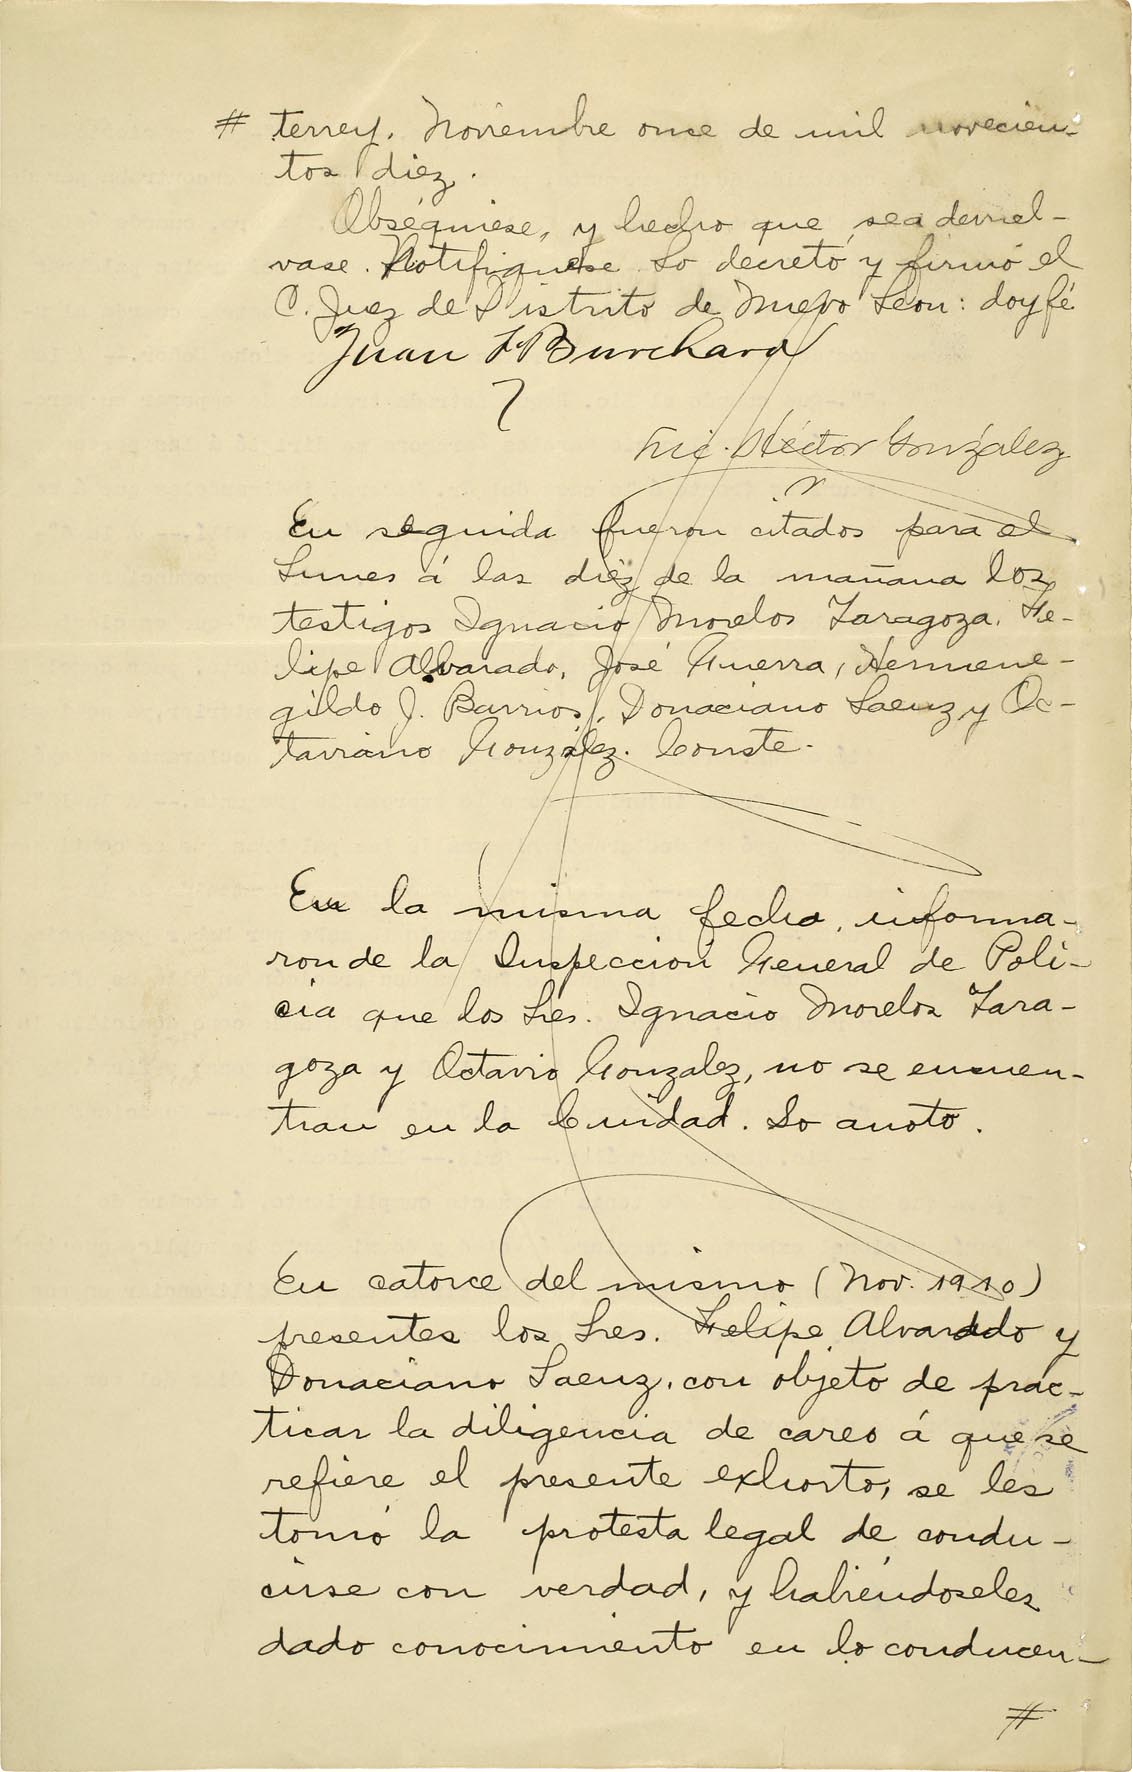 # terrey. Noviembre once de mil novecien-
tos diez.
Obséquiese, y hecho que sea devuel-
vase. Notifiquese Lo decretó y firmó el
C. Juez de Distrito de Nuevo Leon: doy fé
Juan F Burchard
Lic. Héctor González
En seguida fueron citados para el
Lunes á las diez de la mañana los
testigos Ignacio Morelos Zaragoza, Fe-
lipe Alvarado, José Guerra, Hermene-
gildo J. Barrios, Donaciano Saenz y Oc-
taviano González. Conste.
En la misma fecha, informa-
ron de la Inspeccion General de Poli-
cia que los Sres. Ignacio Morelos Zara-
goza y Octavio Gonzalez, no se encuen-
tran en la Ciudad. Lo anoto.
En catorce del mismo (Nov. 1910)
presentes los Sres. Felipe Alvarado y
Donaciano Saenz, con objeto de prac-
ticar la diligencia de careo á que se
refiere el presente exhorto, se les
tomó la protesta legal de condu-
cirse con verdad, y habiéndoseles
dado conocimiento en lo conducen-
#